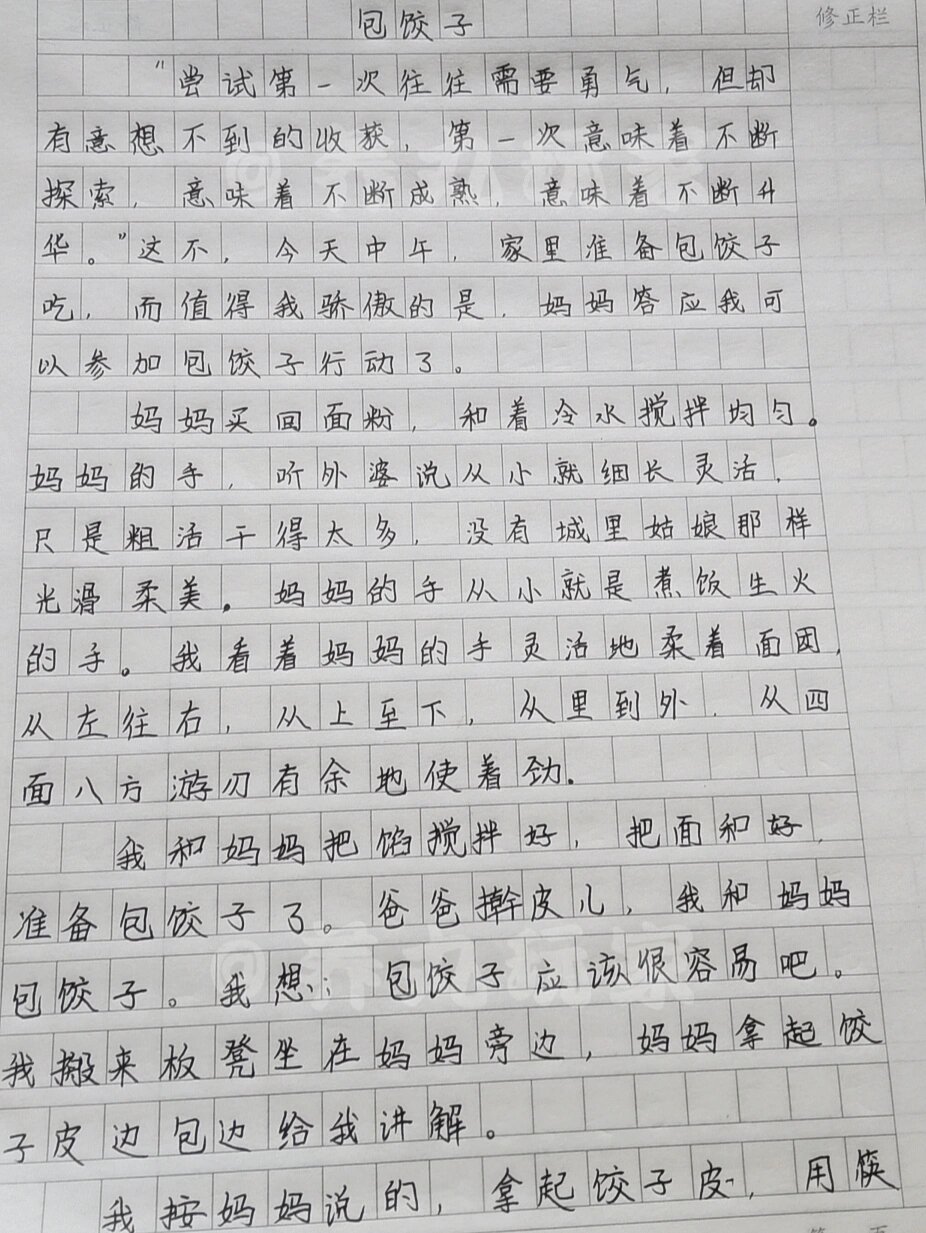 包饺子
修正栏
"尝试第一次往往需要勇气，但却
有意想不到的收获，第一次意味着不断
探索，意味着不断成熟，意味着不断升
华。"这不，今天中午，家里准备包饺子
吃，而值得我骄傲的是，妈妈答应我可
以参加包饺子行动了。
妈妈买回面粉，和着冷水搅拌均匀。
妈妈的手，听外婆说从小就细长灵活，
只是粗活干得太多，没有城里姑娘那样
光滑柔美。妈妈的手从小就是煮饭生火
的手。我看着妈妈的手灵活地柔着面团，
从左往右，从上至下，从里到外，从四
面八方游刃有余地使着劲.
我和妈妈把馅搅拌好，把面和好，
准备包饺子了。爸爸擀皮儿，我和妈妈
包饺子。我想：包饺子应该很容易吧。
我搬来板凳坐在妈妈旁边，妈妈拿起饺
子皮边包边给我讲解。
我按妈妈说的，拿起饺子皮，用筷